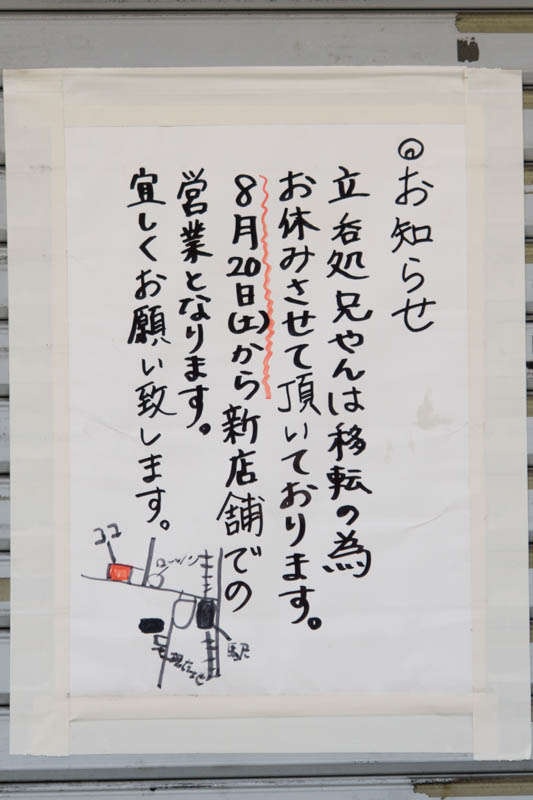 ◎お知らせ
立呑処兄やんは移転の為
お休みさせて頂いております。
8月20日(土)から新店舗での
営業となります。
宜しくお願い致します。
ココ
ローソン
駅